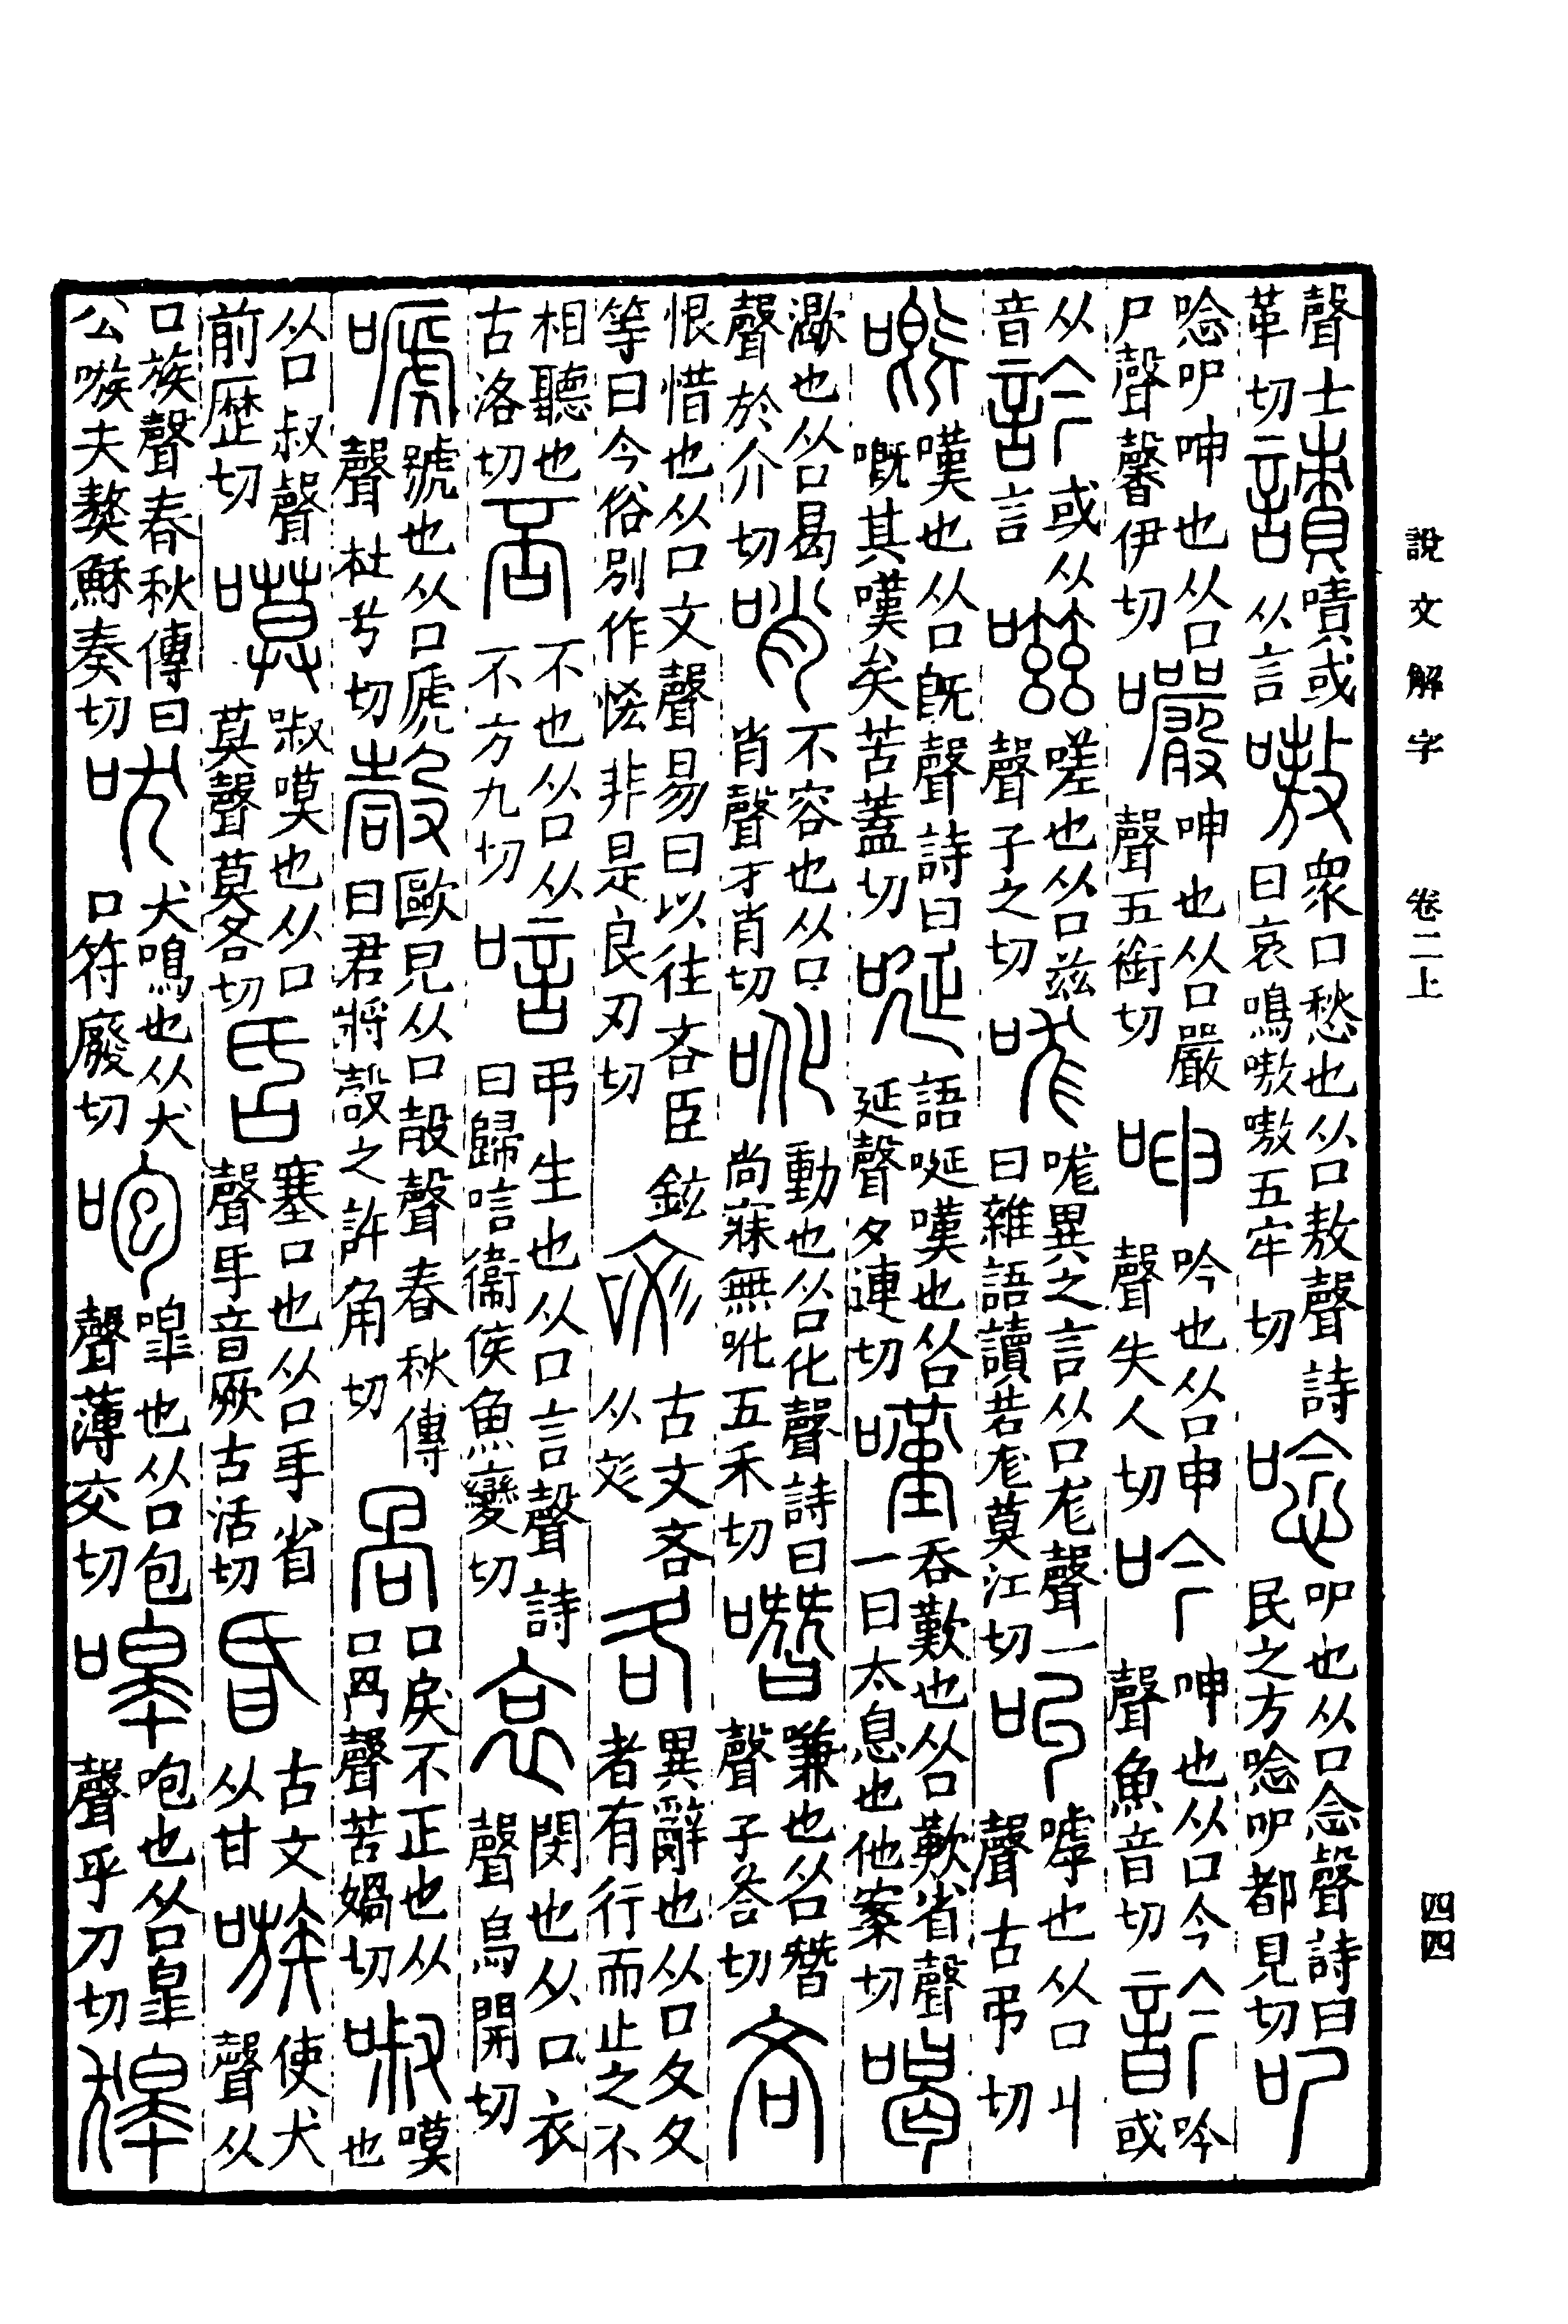 說文解字　卷二上
四四
聲士革切謮嘖或从言嗷衆口愁也从口敖聲詩曰哀鳴嗷嗷五牢切唸㕧也从口念聲詩曰民之方唸㕧都見切㕧
唸㕧呻也从口尸聲馨伊切㘙呻也从口嚴聲五銜切呻吟也从口申聲失人切吟呻也从口今聲魚音切䪩吟或从音
訡或从言嗞嗟也从口兹聲子之切哤哤異之言从口尨聲一曰雜語讀若尨莫江切叫嘑也从口丩聲古弔切
嘅嘆也从口既聲詩曰嘅其嘆矣苦蓋切唌語唌嘆也从口延聲夕連切嘆吞歎也从口歎省聲一曰太息也他案切喝
㵣也从口曷聲於介切哨不容也从口肖聲才肖切吪動也从口化聲詩曰尚寐無吪五禾切噆嗛也从口朁聲子荅切吝
恨惜也从口文聲易曰以往吝臣鉉等曰今俗別作悋非是良刃切㖁古文吝从彣各異辭也从口夂夂者有行而止之不
相聽也古洛切否不也从口从不方九切唁弔生也从口言聲詩曰歸唁衞侯魚變切哀閔也从口衣聲烏開切
嗁號也从口虒聲杜兮切嗀歐皃从口㱿聲春秋傳曰君將嗀之許角切咼口戾不正也从口冎聲苦媧切𠴫嗼也
从口叔聲前歷切嗼𠴫嗼也从口莫聲莫各切𠯑塞口也从口𠂡省聲𠂡音厥古活切昏古文从甘嗾使犬聲从
口族聲春秋傳曰公嗾夫獒穌奏切吠犬鳴也从犬口符廢切咆嗥也从口包聲薄交切嗥咆也从口皋聲乎刀切獋